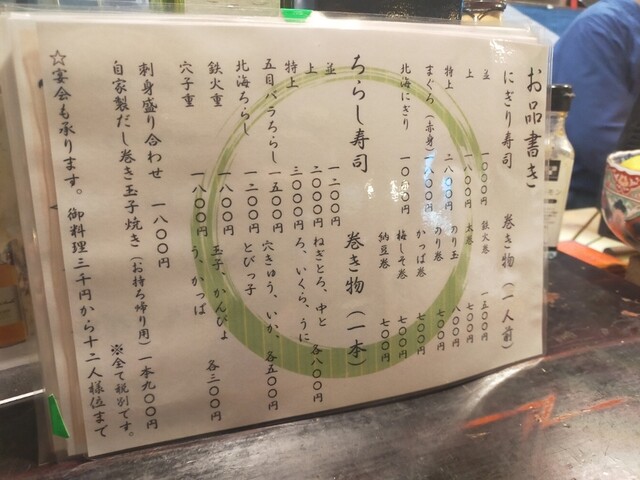 お品書き
にぎり寿司
並 一〇〇〇円
上 一八〇〇円
特上 二八〇〇円
まぐろ（赤身） 一八〇〇円
北海にぎり
巻き物（一人前）
鉄火巻 一五〇〇円
太巻 七〇〇円
のり玉 八〇〇円
のり巻 七〇〇円
かっぱ巻 七〇〇円
梅しそ巻 七〇〇円
納豆巻 七〇〇円
ちらし寿司
並 一二〇〇円
上 二〇〇〇円
特上 三〇〇〇円
五目バラちらし 一五〇〇円
北海ちらし 一二〇〇円
鉄火重 一八〇〇円
穴子重 一八〇〇円
巻き物（一本）
ねぎとろ、中と
ろ、いくら、うに 各八〇〇円
穴きゅう、いか、
とびっ子 各五〇〇円
玉子、かんぴょ
う、かっぱ 各三〇〇円
刺身盛り合わせ 一八〇〇円
自家製だし巻き玉子焼き（お持ち帰り用）一本九〇〇円
※全て税別です。
☆宴会も承ります。御料理三千円から十二人様位まで